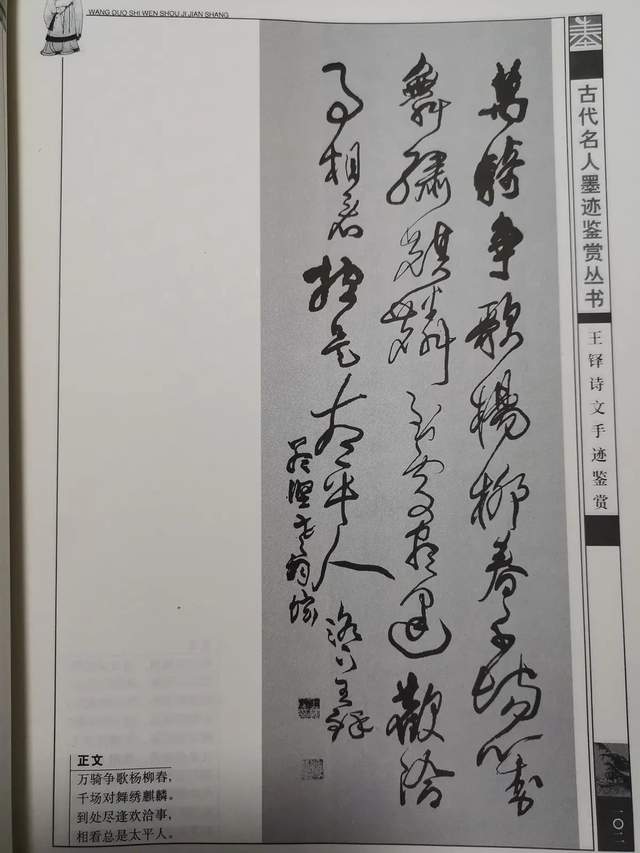 WANG DUO SHI WEN SHOU JI JIAN SHANG
古代名人墨迹鉴赏丛书
王铎诗文手迹鉴赏
一〇二
萬騎爭歌楊柳春千場對
舞繡騏驎到處盡逢歡洽
事相看總是太平人
洛下王鐸
正文
万骑争歌杨柳春，
千场对舞绣麒麟。
到处尽逢欢洽事，
相看总是太平人。